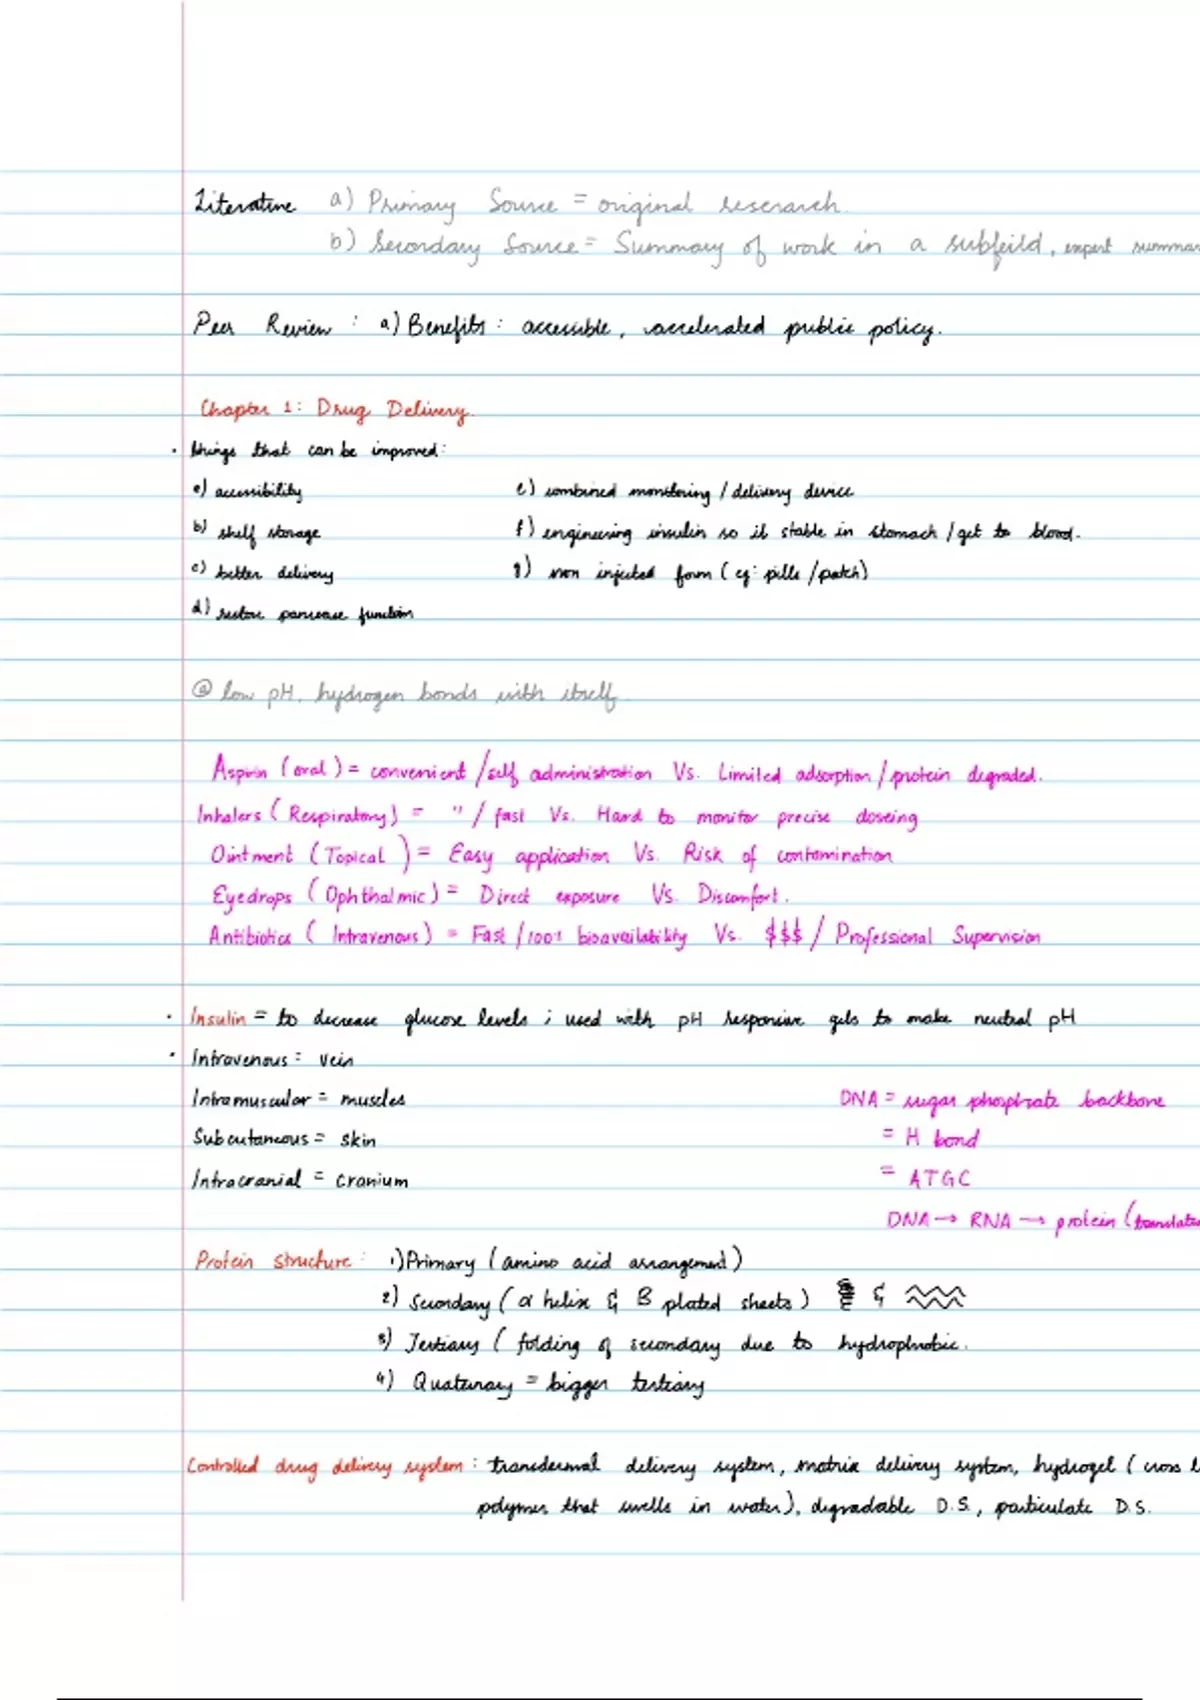 Literature a) Primary Source = original research.
b) Secondary Source = Summary of work in a subfeild, expert summar
Peer Review : a) Benefits : accessible, accelerated public policy.
Chapter 1: Drug Delivery.
· things that can be improved:
a) accessibility e) combined monitoring / delivery device
b) shelf storage f) engineering insulin so it stable in stomach / get to blood.
c) better delivery g) non injected form (eg: pills /patch)
d) restore pancrease function
@ low pH, hydrogen bonds with itself.
Aspirin (oral) = convenient /self administration Vs. Limited adsorption / protein degraded.
Inhalers ( Respiratory) = " / fast Vs. Hard to monitor precise doseing
Ointment (Topical ) = Easy application Vs. Risk of contamination
Eyedrops ( Ophthalmic) = Direct exposure Vs. Discomfort.
Antibiotics ( Intravenous) = Fast /100% bioavailability Vs. $$$ / Professional Supervision
· Insulin = to decrease glucose levels ; used with pH responsive gels to make neutral pH
· Intravenous : vein
Intramuscular = muscles DNA = sugar phosphate backbone
Subcutaneous = skin = H bond
Intracranial = cranium = ATGC
DNA → RNA → protein (translate
Protein structure : 1) Primary (amino acid arrangement)
2) Secondary ( α helix & B plated sheets ) &
3) Tertiary ( folding of secondary due to hydrophobic.
4) Quaternary = bigger tertiary
Controlled drug delivery system : transdermal delivery system, matrix delivery system, hydrogel ( cross l
polymer that swells in water), degradable D.S., particulate D.S.